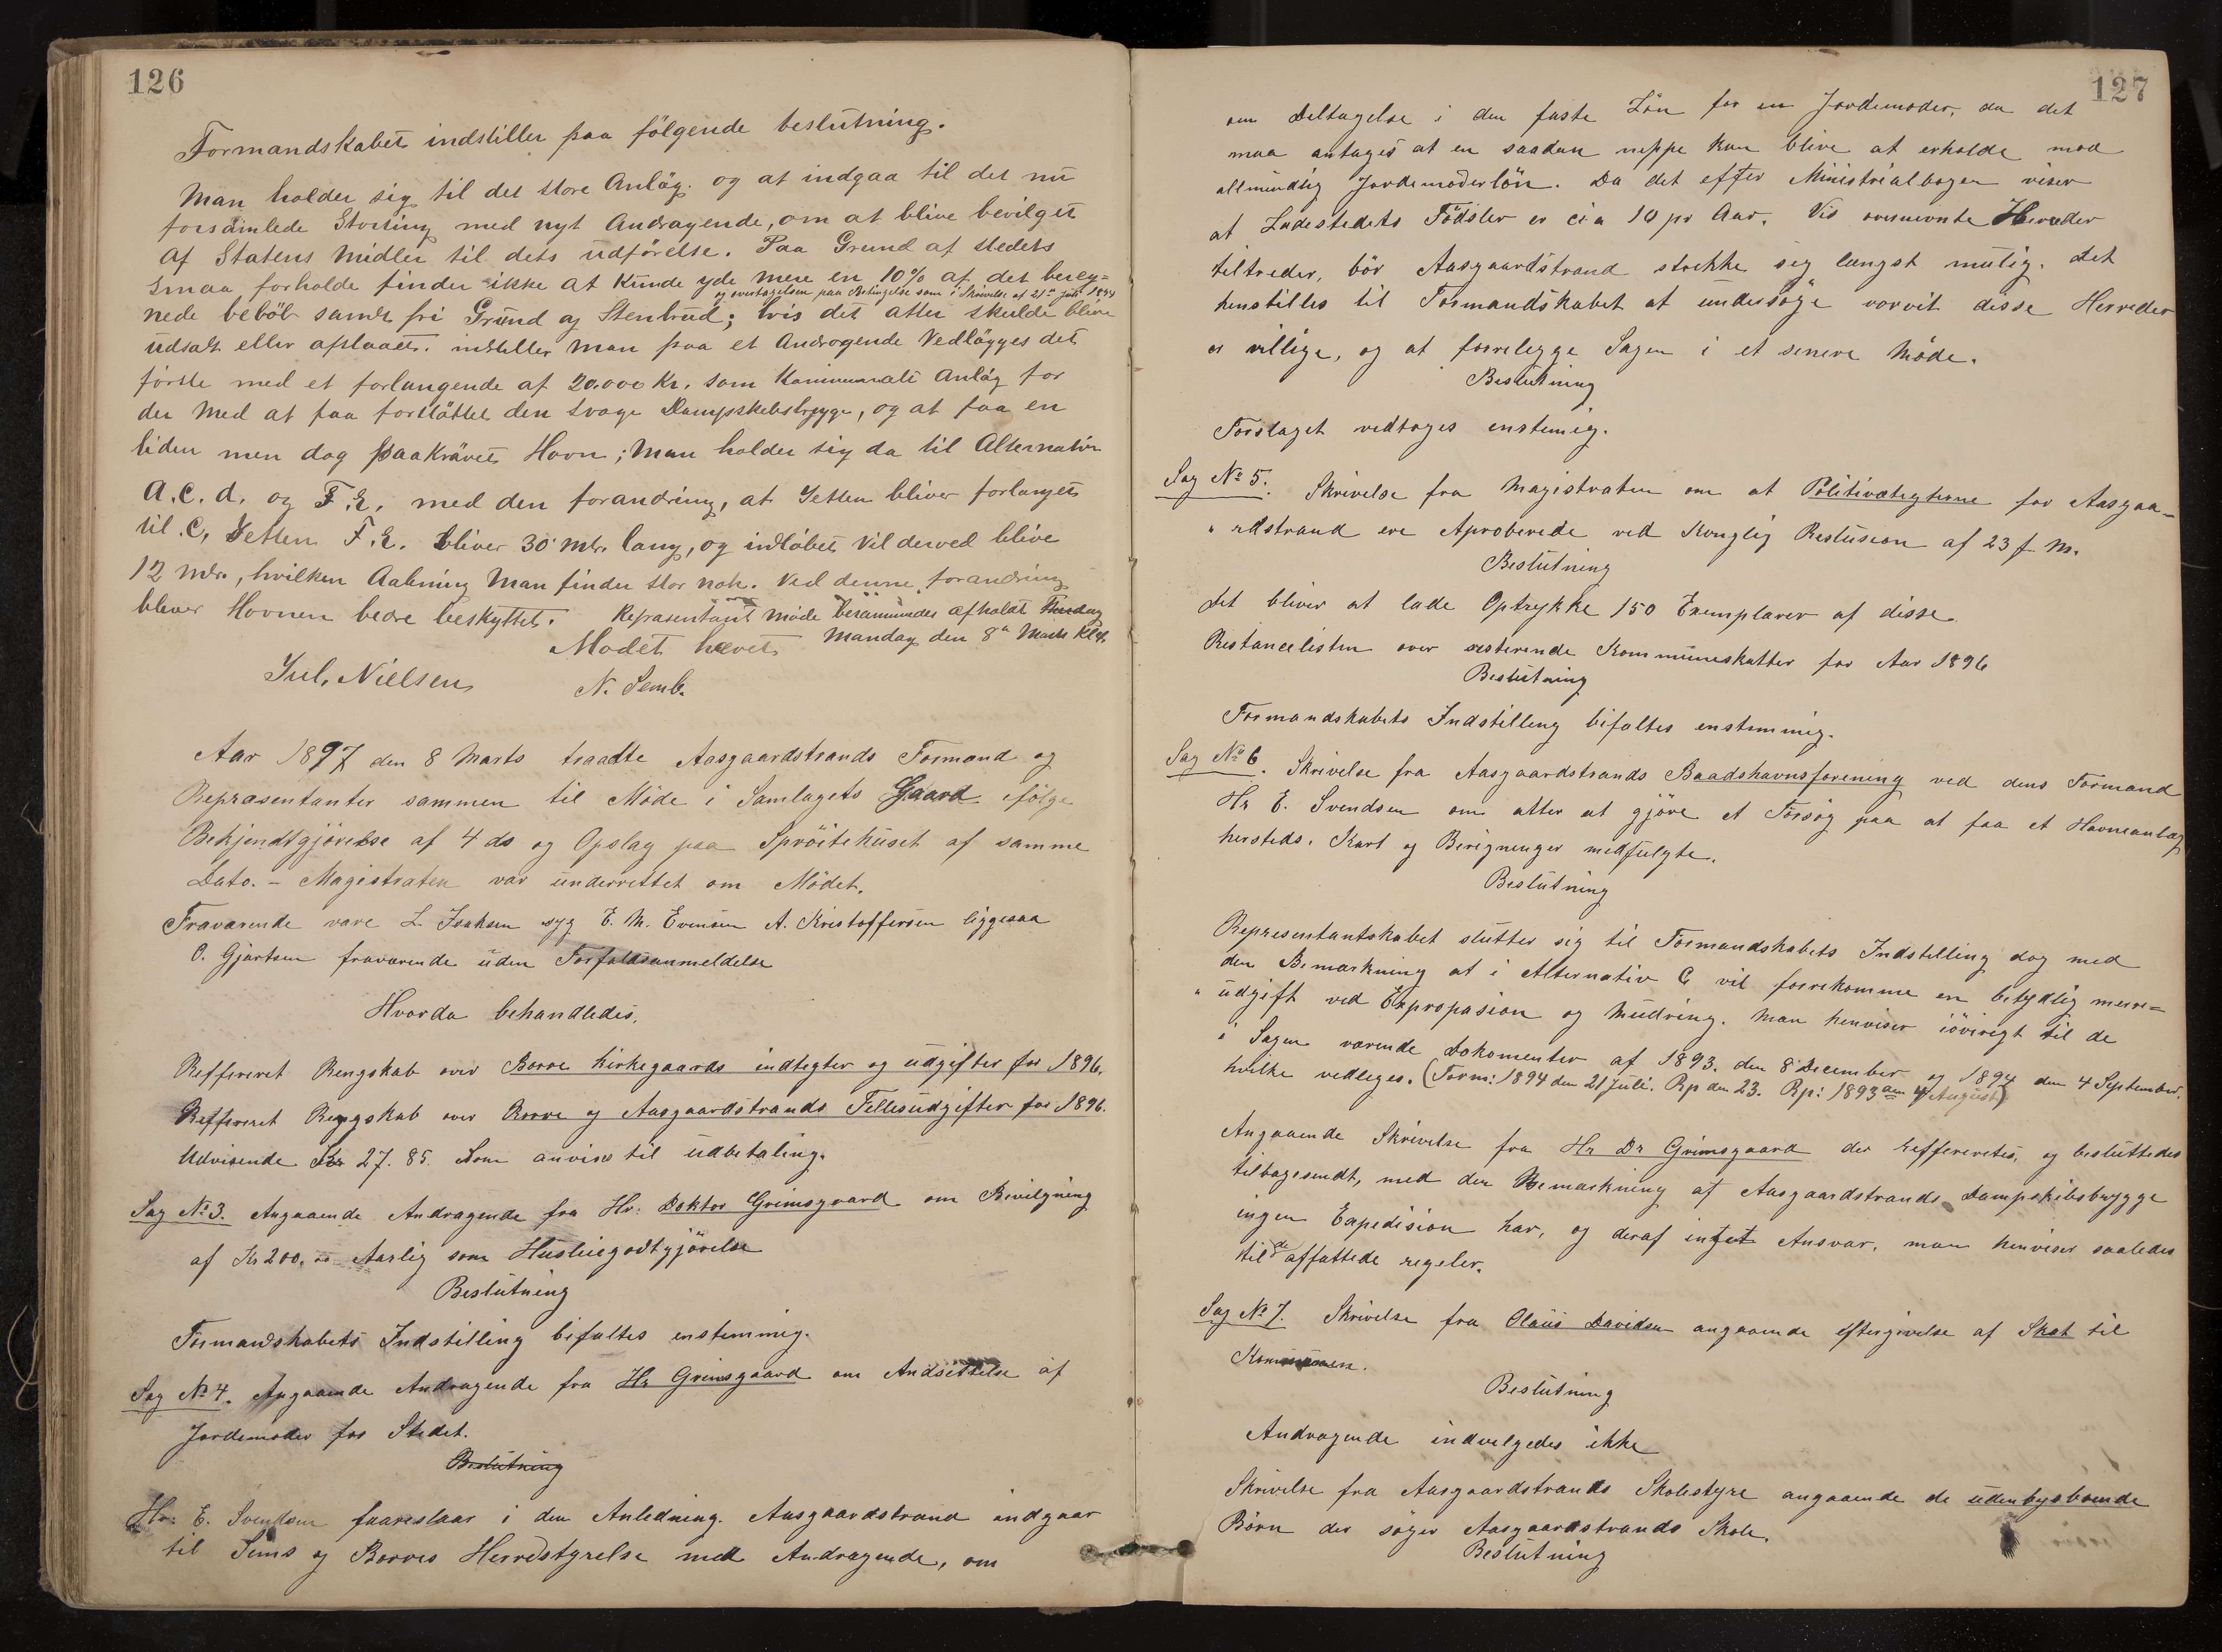 126
Formandskabet indstiller paa fölgende beslutning.
Man holder sig til det store Anläg. og at indgaa til det nu
forsamlede Storting med nyt Andragende, om at blive bevilget
af Statens Midler til dets udförelse. Paa Grund af stedets
Smaa forholde finder ikke at kunde yde mere en 10% af det bereg=
og overtagelsen paa Betingelse som i Skrivelse af 21de Juli 1894
nede belöb samt fri Grund og Stenbrud; hvis det atter skulde blive
udsat eller afslaaet. indstiller man paa et Androgende Vedlägges det
förste med et forlangende af 20.000 Kr. som Kommunalt Anläg for
der med at faa forstöttet den svage Dampskibsbrygge, og at faa en
liden men dog paakrävet Havn; Man holder sig da til Alternativ
A.C.d. og F.E. med den forandring, at Jetten bliver forlanget
til C, Jetten F.E. bliver 30 mtr. lang, og indlöbet vil derved blive
12 mtr., hvilken Aabning Man finder stor nok. Ved denne forandring
bliver Havnen bedre beskyttet. Repræsentant möde berammedes afholdt Tirsdag
Mödet hævet Mandag den 8de Marts Kl 4.
Jul. Nielsen N. Semb.
Aar 1897 den 8 Marts traadte Aasgaardstrands Formand og
Repræsentanter sammen til Möde i Samlagets Gaard ifölge
Bekjendtgjörelse af 4 ds og Opslag paa Spröitehuset af samme
Dato. – Magistraten var underrettet om Mödet.
Fraværende vare L. Isaksen syg E. M. Evensen A. Kristoffersen liggesaa
O. Gjertsen fraværende uden Forfaldsanmeldelse
Hvorda behandledes.
Reffereret Rengskab over Borre Kirkegaards indtegter og udgifter for 1896.
Reffereret Regskab over Borre og Aasgaardstrands Fellesudgifter for 1896.
Udvisende Kr 27.85. Som anvises til udbetaling.
Sag No 3. Angaaende Andragende fra Hr: Doktor Grimsgaard om Bevilgning
af Kr 200.00 Aarlig som Husleiegodtgjörelse
Beslutning
Formandskabets Indstilling bifaltes enstemmig.
Sag No 4. Angaaende Andragende fra Hr Grimsgaard om Andsettelse af
Jordemoder for Stedet.
Beslutning
Hr: E. Svendsen faareslaar i den Anledning. Aasgaardstrand indgaar
til Sems og Borres Herredstyrelse med Andragende, om
127
om Deltagelse i den faste Lön for en Jordemoder, da det
maa antages at en saadan neppe kan blive at erholde mod
allmindlig Jordemoderlön. Da det efter Ministrialbogen viser
at Ladestedets Födsler er cia 10 pr Aar. Vis ovennevnte Herreder
tiltreder, bör Aasgaardstrand strekke sig langst mulig. Det
henstilles til Formandskabet at undersöge vorvit disse Herreder
er villige, og at forrelegge Sagen i et senere Möde.
Beslutning
Forslaget vedtages enstemig.
Sag No 5. Skrivelse fra Magistraten om at Politivætegterne for Aasgaa-
" rdstrand ere Aproberede ved Konglig Reslusion af 23 f. M.
Beslutning
Det bliver at lade Optrykke 150 Exemplarer af disse.
Restancelisten over resterende Kommuneskatter for Aar 1896
Beslutning
Formandskabets Indstilling bifaltes enstemmig.
Sag No 6. Skrivelse fra Aasgaardstrands Baadshavnsforening ved dens Formand
Hr E. Svendsen om atter at gjöre et Forsög paa at faa et Havneanlæg
hersteds. Kart og Beregninger medfulgte.
Beslutning
Representantskabet slutter sig til Formandskabets Indstilling dog med
den Bemærkning at i Alternativ C vil forrekomme en betydlig merre=
" udgift ved Expropasion og Mudring. Man henviser iövrigt til de
i Sagen værende Dokomenter af 1893. den 8 December og 1894 den 4 September.
hvilke vedleges. (Form: 1894 den 21 Juli. Rp den 23. Rp: 1893 den 4 August)
Angaaende Skrivelse fra Hr Dr Grimsgaard der reffereretes, og besluttedes
tilbagesendt, med den Bemærkning at Aasgaardstrands Dampskibsbrygge
ingen Expedision har, og deraf intet Ansvar, man henviser saaledes
til de affattede regeler.
Sag No 7. Skrivelse fra Olaus Davidsen angaaende Eftergivelse af Skat til
Kommunen.
Beslutning
Andragende indvelgedes ikke
Skrivelse fra Aasgaardstrands Skolestyre angaaende de udenbysboende
Börn der söger Aasgaardstrands Skole.
Beslutning